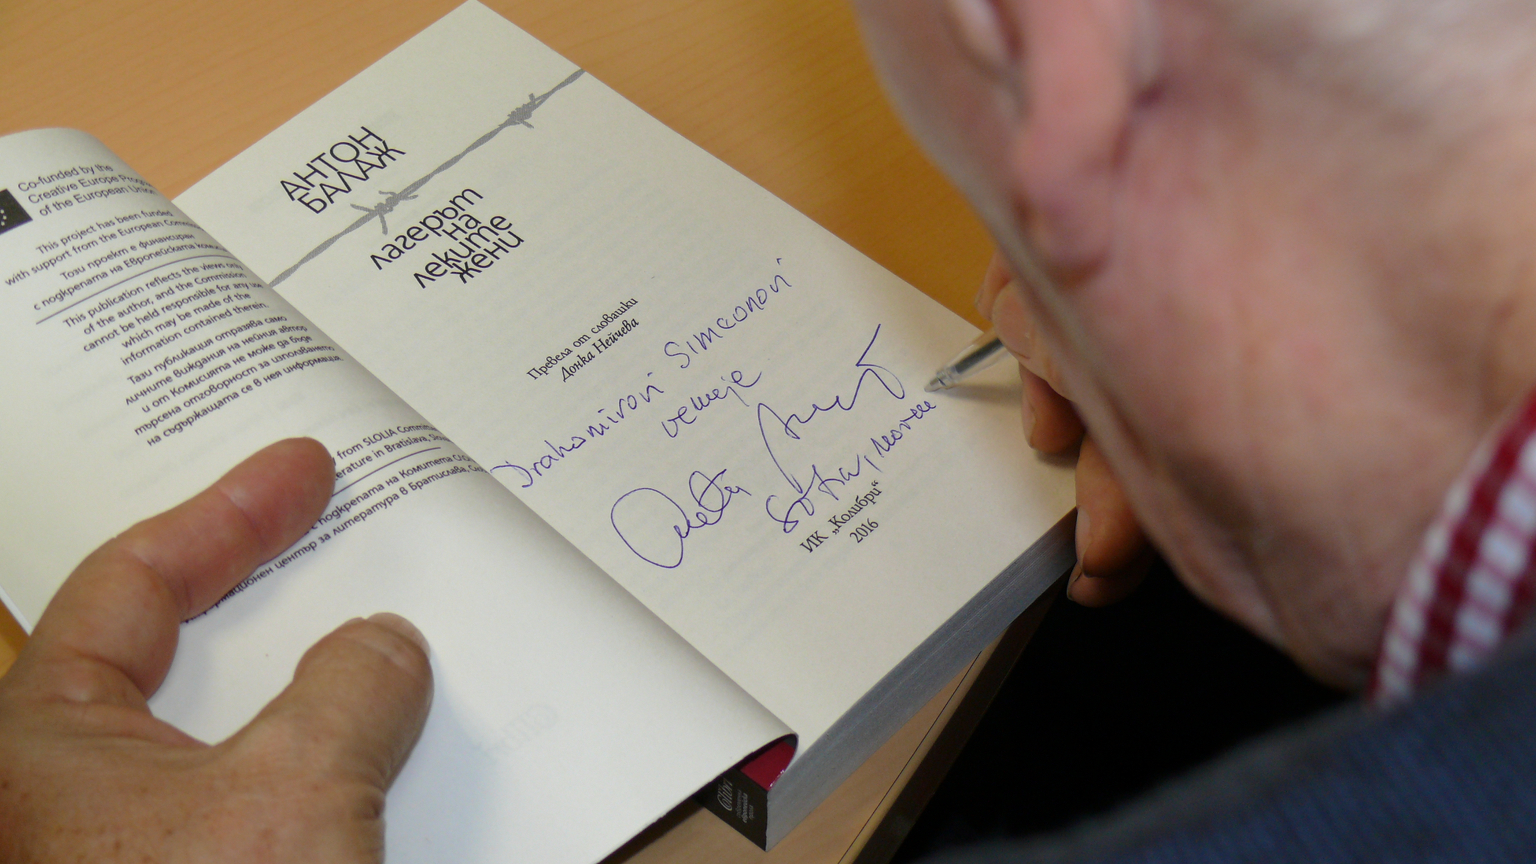 Co-funded by the
Creative Europe
of the European Union
This project has been funded
with support from the European
Този проект е финансиран
с подкрепата на Европейската
This publication reflects the views only
of the author, and the Commission
cannot be held responsible for any use
which may be made of the
information contained therein.
Тази публикация отразява само
личните виждания на нейния автор
и от Комисията не може да бъде
търсена отговорност за използването
на съдържащата се в нея информация.
from SLOLIA
in Bratislava,
подкрепата на Комитета
център за литература в Братислава,
АНТОН
БАЛАЖ
лагерът
на
леките
жени
Превела от словашки
Донка Нейчева
Drahomirovi Simeonovi
venuje
ИК „Колибри“
2016